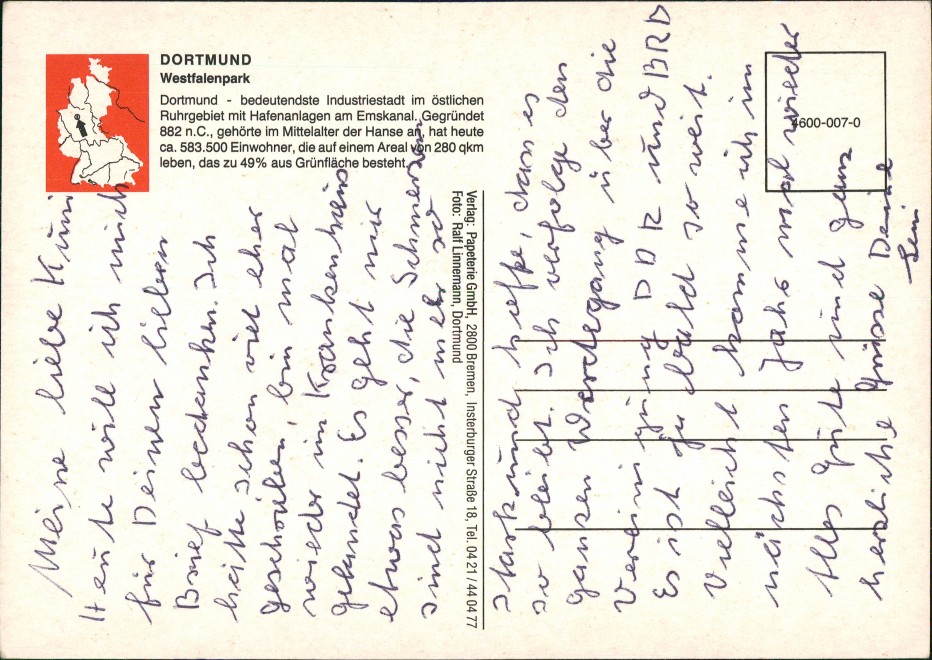 DORTMUND
Westfalenpark
Dortmund - bedeutendste Industriestadt im östlichen
Ruhrgebiet mit Hafenanlagen am Emskanal. Gegründet
882 n.C., gehörte im Mittelalter der Hanse an, hat heute
ca. 583.500 Einwohner, die auf einem Areal von 280 qkm
leben, das zu 49% aus Grünfläche besteht.
Meine liebe Kuni
Heute will ich mich
für Deinen lieben
Brief bedanken. Ich
hätte schon viel eher
geschrieben, bin mal
wieder im Krankenhaus
gelandet. Es geht mir
etwas besser, die Schmerzen
sind nicht mehr so
Verlag: Papeterie GmbH, 2800 Bremen, Insterburger Straße 18, Tel. 04 21 / 44 04 77
Foto: Ralf Linnemann, Dortmund
stark und hoffe, dass es
so bleibt. Ich verfolge den
ganzen Werdegang über die
Vereinigung DDR und BRD
Es ist ja bald so weit.
Vielleicht komme ich im
nächsten Jahr mal wieder
Alles Gute und ganz
herzliche Grüsse Deine
4600-007-0